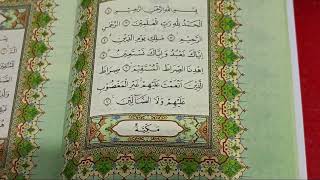 بِسْمِ اللَّهِ الرَّحْمَٰنِ الرَّحِيمِ ۝١
الْحَمْدُ لِلَّهِ رَبِّ الْعَالَمِينَ ۝٢ الرَّحْمَٰنِ
الرَّحِيمِ ۝٣ مَالِكِ يَوْمِ الدِّينِ ۝٤
إِيَّاكَ نَعْبُدُ وَإِيَّاكَ نَسْتَعِينُ ۝٥
اهْدِنَا الصِّرَاطَ الْمُسْتَقِيمَ ۝٦ صِرَاطَ
الَّذِينَ أَنْعَمْتَ عَلَيْهِمْ غَيْرِ الْمَغْضُوبِ
عَلَيْهِمْ وَلَا الضَّالِّينَ ۝٧
مَكِّيَّةٌ